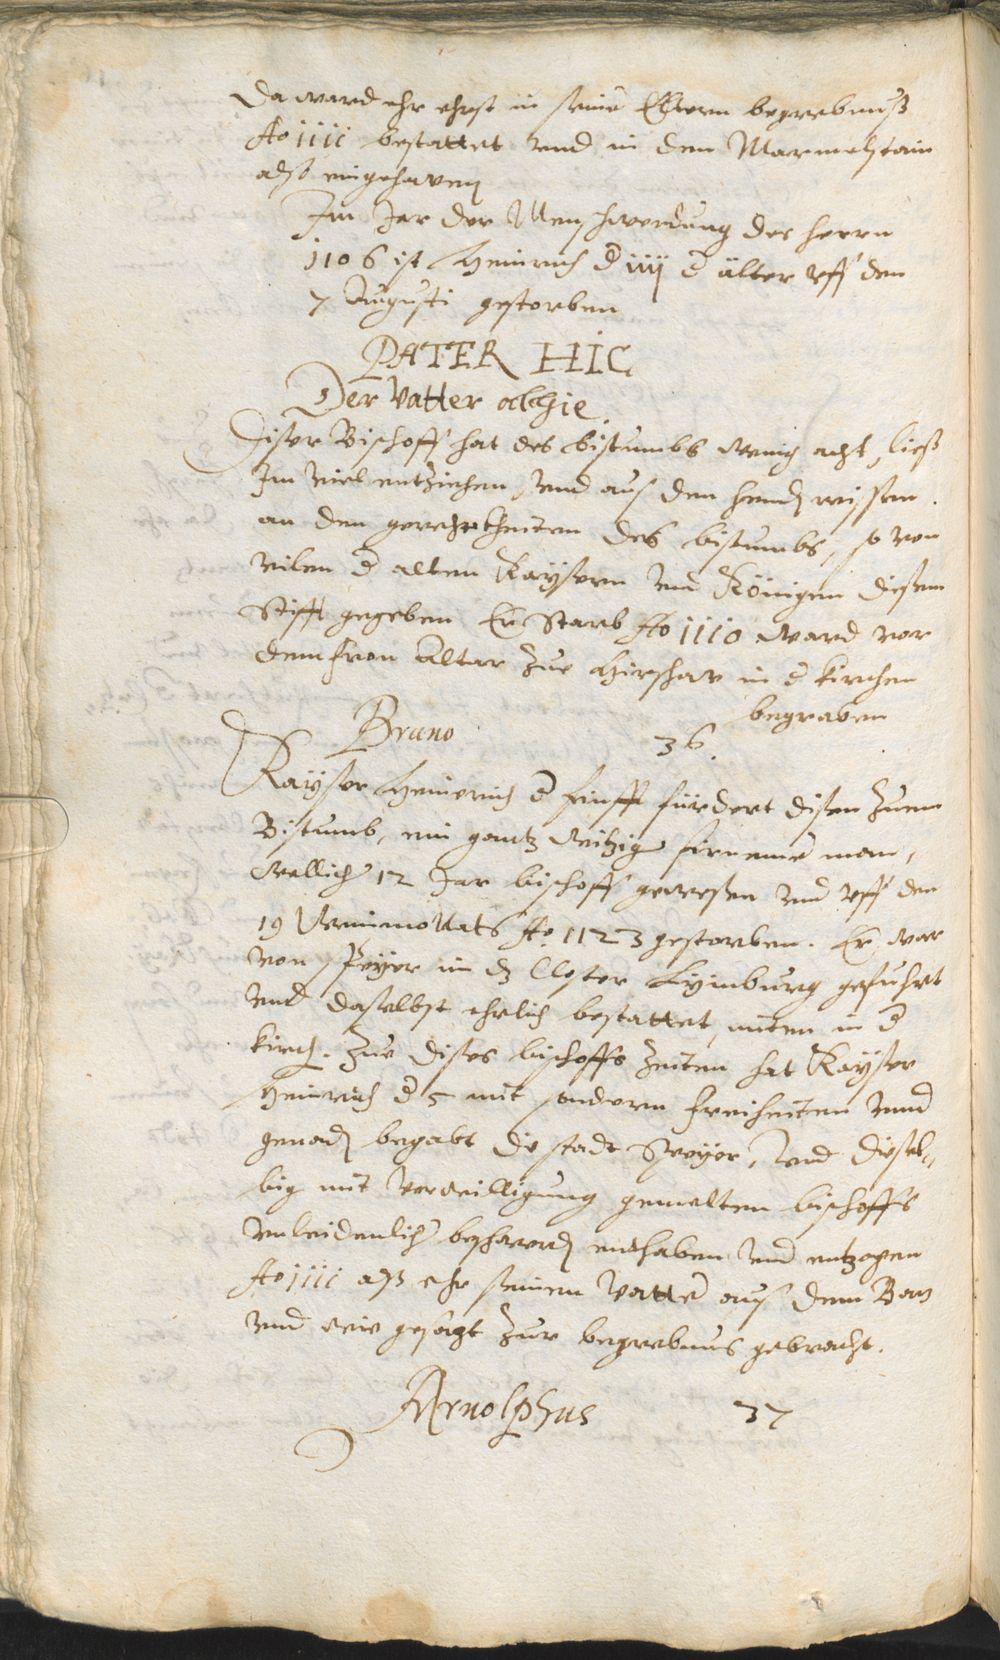 Da ward ehr ehrst in seine Elttern begrebnuß
Ao 1111 bestattet und in den Marmelstain
also eingehawen
Im Jar der Menschwerdung des herrn
1106 ist Heinrich d iiij d älter uff den
7 Augusti gestorben
PATER HIC
Der Vatter alhie
Diser Bischoff hat des bistumbs wenig acht, ließ
Im viel entziehen, und aus den hend reissen
an den gerechtkheiten des bistumbs, so von
vilen d alten Kaysern und Königen disem
Stifft gegeben Er Starb Ao 1110 ward vor
dem fron Altar zue Hirschaw in d kirchen
begraben
Bruno 36.
Kayser Heinrich d finfft fürdert disen zuem
Bistumb, ein gantz witzig firneme man,
wellich 12 Jar bischoff gewessen und uff den
19 Weinmonats Ao. 1123 gestorben. Er war
von speyer in dz Closter Lymburg gefuhrt
und daselbst ehrlich bestattet, miten in d
kirch. Zue dises bischoffs Zeiten hat Kayser
Heinrich d 5 mit sondern freiheiten unnd
genad begabt die stadt Speyer, und diesel„
big mit verwilligung gemelten bischoffs
unleidenlich beschwerd enthaben und entzogen
Ao 1111 alß ehr seinen Vatter aus dem Ban
und wie gesagt zur begrebnus gebracht.
Arnolphus 37